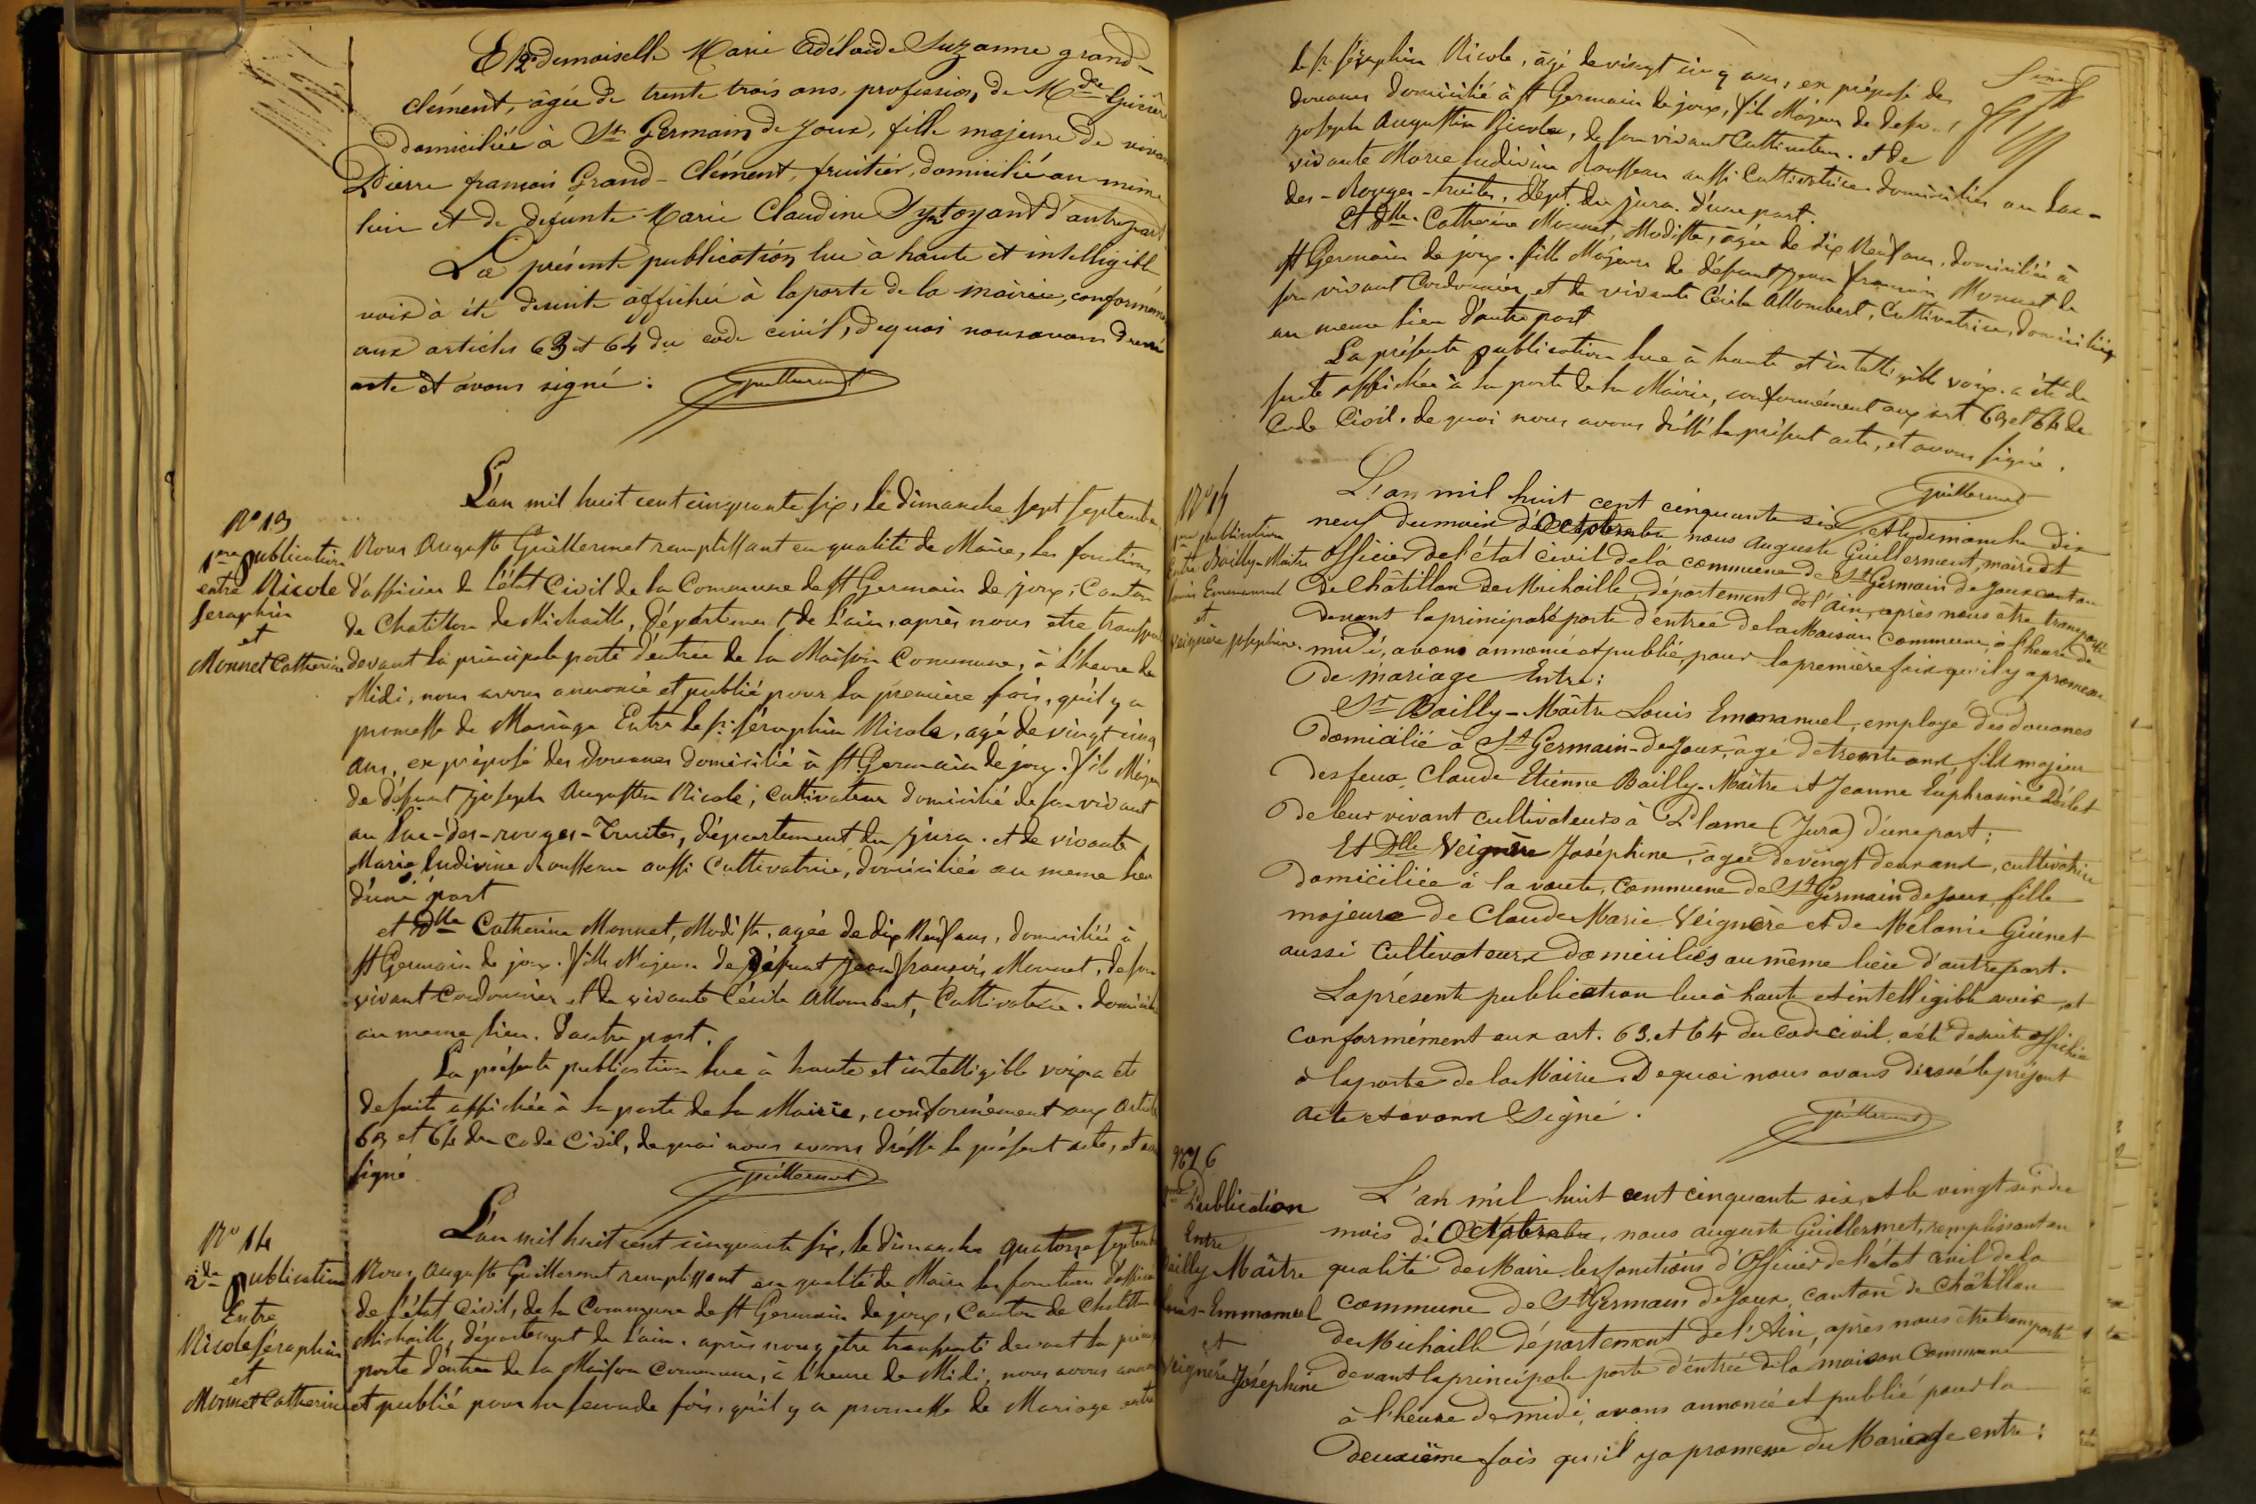 Et demoiselle Marie Adélaïde Suzanne grand-
clément, âgée de trente trois ans, profession, de
domiciliée à St Germain de Joux, fille majeure de vivan
Pierre françois Grand-Clément, fruitier, domicilié au même
lieu et de défunte Marie Claudine d'autre part
La présente publication lue à haute et intelligible
voix à été desuite affichée à la porte de la mairie, conforméme
aux articles 63 et 64 du code civil, dequoi nous avons dressé
acte et avons signé :
Guillermet
N° 13
1re publication
entre Nicole
Seraphin
et
Monnet Catherine
L'an mil huit cent cinquante six, le dimanche sept septembre
Nous Auguste Guillermet remplissant en qualité de Maire, les fonctions
d'officier de l'état Civil de la Commune de St Germain de joux, Canton
de Chatillon de Michaille, département de l'ain, après nous etre transpor
devant la principale porte d'entrée de la Maison Commune, à l'heure de
Midi, nous avons annoncé et publié pour la première fois, qu'il y a
promesse de Mariage Entre le sr. Séraphin Nicole, agé de vingt cinq
ans, ex préposé des Douanes domicilié à St Germain de joux. fils Majeur
de défunt joseph Augustin Nicole, Cultivateur domicilié de son vivant
au Lac-des-rouges-Truites, département du jura. et de vivante
Marie Ludivine Rousseau aussi Cultivatrice, domiciliée au meme lieu
d'une part
et Dlle Catherine Monnet, Modiste, agée de dix Neuf ans, domiciliée à
St Germain de joux. fille Majeure de Défunt jean françois Monnet, de son
vivant Cordonnier et de vivante Cécile Allombert, Cultivatrice. domiciliée
au meme lieu. d'autre part.
La présente publication lue à haute et intelligible voix a ete
de suite affichée à la porte de la Mairie, conformément aux article
63 et 64 du Code Civil, de quoi nous avons dressé le présent acte, et avo
signé
Guillermet
N° 14
2de publication
Entre
Nicole Séraphin
et
Monnet Catherine
L'an mil huit cent cinquante six, le dimanche quatorze septembre
Nous Auguste Guillermet remplissant en qualité de Maire les fonctions d'officier
de l'état Civil, de la Commune de St Germain de joux, Canton de Chatillon
Michaille, département de l'ain. après nous être transporté devant la princi
porte d'entrée de la Maison Commune, à l'heure de Midi, nous avons annon
et publié pour la seconde fois. qu'il y a promesse de Mariage entre
le sr. Séraphin Nicole, âgé de vingt cinq ans, ex préposé des
douanes domicilié à St Germain de joux, fils Majeur de defunt
joseph Augustin Nicole, de son vivant Cultivateur. et de
vivante Marie Ludivine Rousseau aussi Cultivatrice domiciliés au Lac-
des-Rouges-truites, dépt. du jura. d'une part.
et Dlle. Catherine Monnet, Modiste, âgée de dix Neuf ans, domiciliée à
St Germain de joux. fille Majeure de défunt jean françois Monnet de
son vivant Cordonnier, et de vivante Cécile Allombert, Cultivatrice, domiciliée
au meme lieu d'autre part
La présente publication lue à haute et intelligible voix. a été de
suite affichée à la porte de la Mairie, conformément aux art. 63 et 64 du
Code Civil. de quoi nous avons dressé le présent acte, et avons signé.
Guillermet
1re publication
Entre Bailly-Maître
Louis Emmanuel
et
Veignère Joséphine.
L'an mil huit cent cinquante six, et le dimanche dix
neuf du mois d'Octobre nous Auguste Guillermet, maire et
officier de l'état civil de la commune de St Germain de Joux canton
de Châtillon de Michaille, département de l'Ain, après nous être transporté
devant la principale porte d'entrée de la Maison Commune, à l'heure de
midi, avons annoncé et publié, pour la première fois qu'il y a promesse
de mariage Entre :
Sr Bailly-Maître Louis Emmanuel, employé des douanes
domicilié à St Germain-de Joux, âgé de trente ans, fils majeur
des feux Claude Etienne Bailly-Maître et Jeanne Euphrosine
de leur vivant cultivateurs à (Jura) d'une part ;
Et Dlle Veignère Joséphine, âgée de vingt deux ans, cultivatrice
domiciliée à la voute, Commune de St Germain de Joux, fille
majeure de Claude Marie Veignère et de Mélanie Guinet
aussi Cultivateurs domiciliés au même lieu d'autre part.
La présente publication lue à haute et intelligible voix, et
conformément aux art. 63. et 64 du code civil, a été desuite affichée
à la porte de la Mairie. De quoi nous avons dressé le présent
acte et avons Signé.
Guillermet
N° 16
Publication
Entre
Bailly Maître
Louis-Emmanuel
et
Veignère Joséphine
L'an mil huit cent cinquante six, et le vingt six du
mois d'Octobre, nous Auguste Guillermet, remplissant en
qualité de Maire les fonctions d'Officier de l'état civil de la
commune de St Germain de Joux, canton de Châtillon
de Michaille département de l'Ain, après nous être transporté
devant la principale porte d'entrée de la maison Commune
à l'heure de midi, avons annoncé et publié pour la
deuxième fois qu'il y a promesse de Mariage entre :